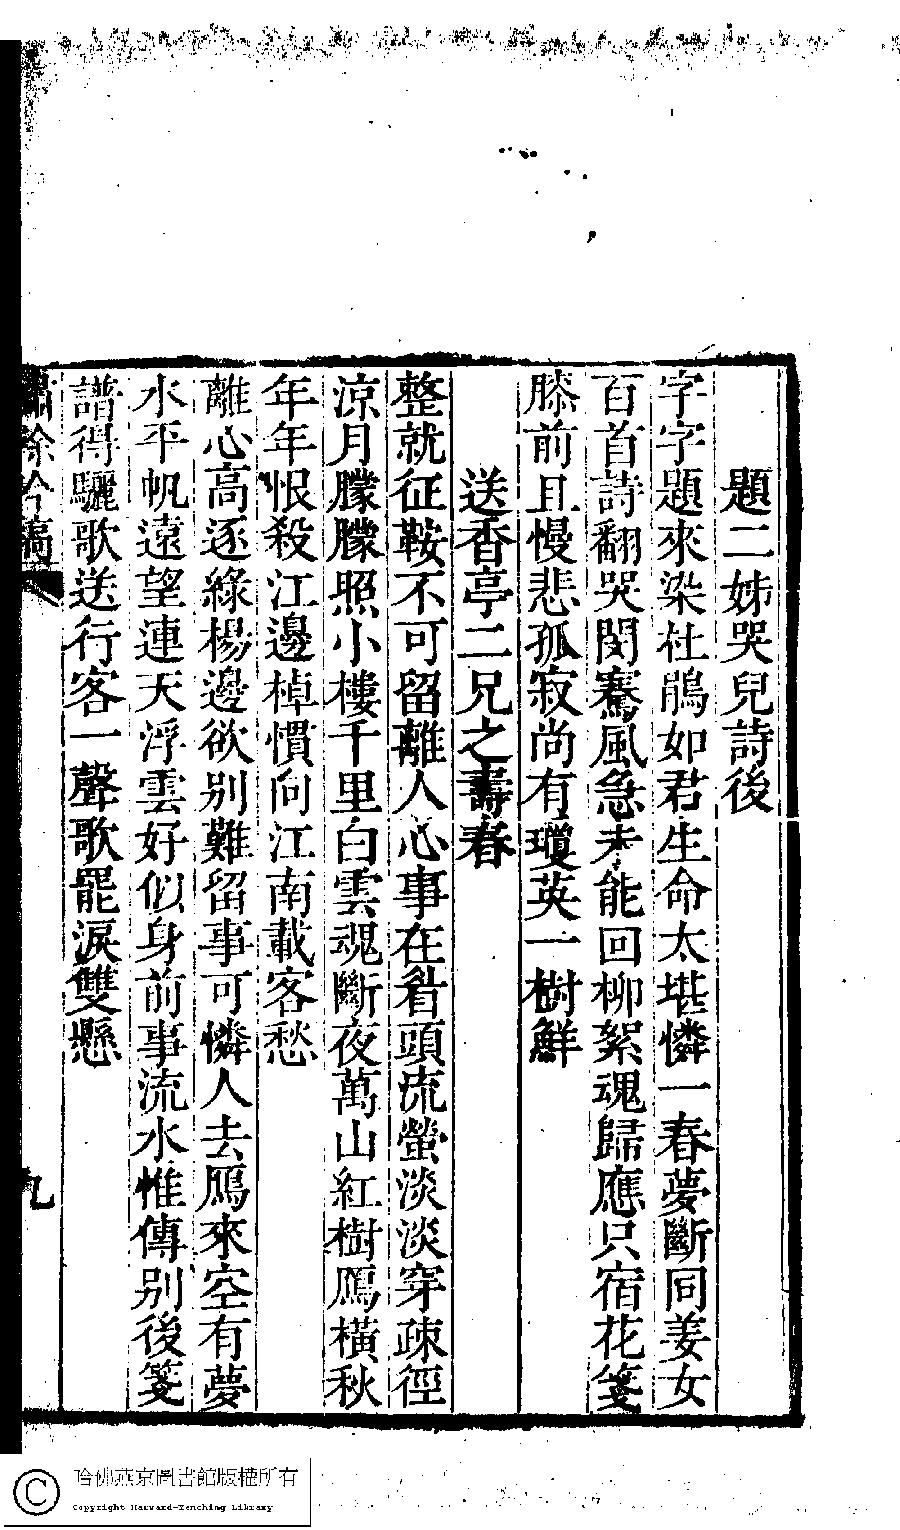 題二姊哭兒詩後
字字題來染杜鵑如君生命太堪憐一春夢斷同姜女
百首詩翻哭閔騫風急未能回柳絮魂歸應只宿花箋
膝前且慢悲孤寂尚有瓊英一樹鮮
送香亭二兄之壽春
整就征鞍不可留離人心事在眉頭流螢淡淡穿疎徑
涼月朦朦照小樓千里白雲魂斷夜萬山紅樹鴈橫秋
年年恨殺江邊棹慣向江南載客愁
離心高逐綠楊邊欲別難留事可憐人去鴈來空有夢
水平帆遠望連天浮雲好似身前事流水惟傳別後箋
譜得驪歌送行客一聲歌罷淚雙懸
餘吟稿
九
哈佛燕京圖書館版權所有
Copyright Harvard-Yenching Library